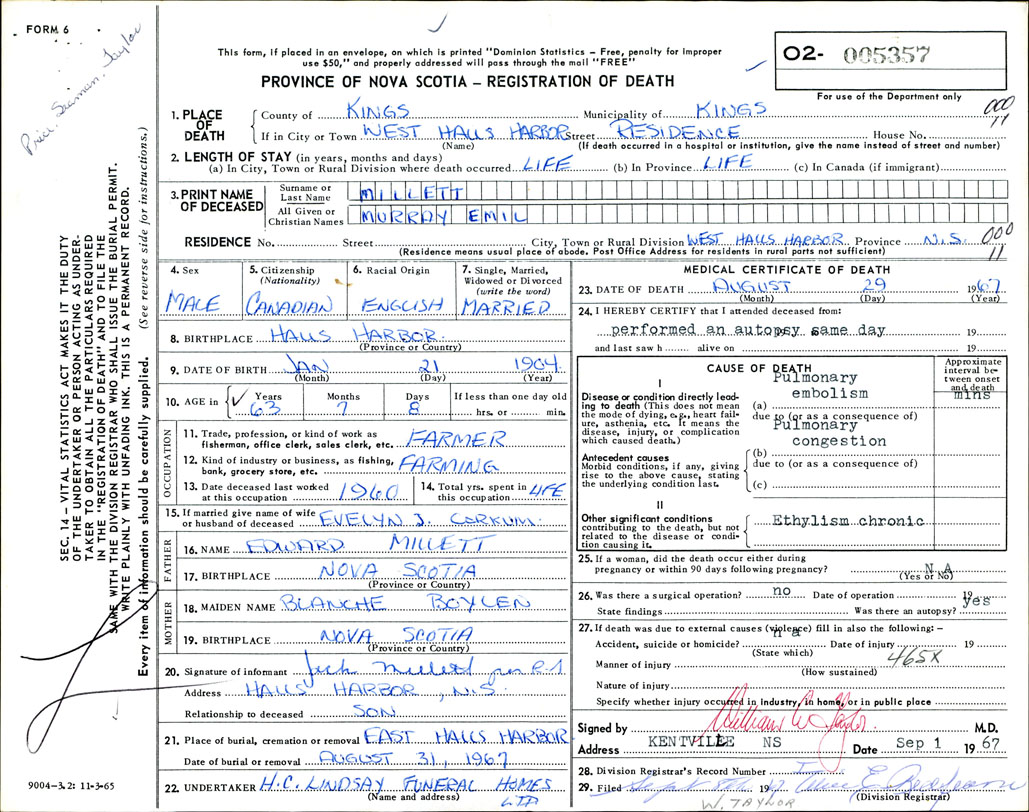 FORM 6
This form, if placed in an envelope, on which is printed "Dominion Statistics – Free, penalty for improper
use $50," and properly addressed will pass through the mail "FREE"
PROVINCE OF NOVA SCOTIA – REGISTRATION OF DEATH
02- 005357
For use of the Department only
Price. Seaman. Taylor
SEC. 14 – VITAL STATISTICS ACT MAKES IT THE DUTY
OF THE UNDERTAKER OR PERSON ACTING AS UNDER-
TAKER TO OBTAIN ALL THE PARTICULARS REQUIRED
IN THE "REGISTRATION OF DEATH" AND TO FILE THE
SAME WITH THE DIVISION REGISTRAR WHO SHALL ISSUE THE BURIAL PERMIT.
WRITE PLAINLY WITH UNFADING INK. THIS IS A PERMANENT RECORD.
Every item of information should be carefully supplied. (See reverse side for instructions.)
1. PLACE OF DEATH
County of KINGS Municipality of KINGS
000
11
If in City or Town WEST HALLS HARBOR Street RESIDENCE House No.
(Name) (If death occurred in a hospital or institution, give the name instead of street and number)
2. LENGTH OF STAY (in years, months and days)
(a) In City, Town or Rural Division where death occurred LIFE (b) In Province LIFE (c) In Canada (if immigrant)
3. PRINT NAME OF DECEASED
Surname or Last Name MILLETT
All Given or Christian Names MURRAY EMIL
RESIDENCE No. Street City, Town or Rural Division WEST HALLS HARBOR Province N.S. 000
11
(Residence means usual place of abode. Post Office Address for residents in rural parts not sufficient)
4. Sex MALE
5. Citizenship (Nationality) CANADIAN
6. Racial Origin ENGLISH
7. Single, Married, Widowed or Divorced (write the word) MARRIED
8. BIRTHPLACE HALLS HARBOR
(Province or Country)
9. DATE OF BIRTH JAN 21 1904
(Month) (Day) (Year)
10. AGE in Years Months Days If less than one day old
63 7 8 hrs. or min.
OCCUPATION
11. Trade, profession, or kind of work as
fisherman, office clerk, sales clerk, etc. FARMER
12. Kind of industry or business, as fishing,
bank, grocery store, etc. FARMING
13. Date deceased last worked at this occupation 1960
14. Total yrs. spent in this occupation LIFE
15. If married give name of wife
or husband of deceased EVELYN J. CORKUM.
FATHER
16. NAME EDWARD MILLETT
17. BIRTHPLACE NOVA SCOTIA
(Province or Country)
MOTHER
18. MAIDEN NAME BLANCHE BOYLEN
19. BIRTHPLACE NOVA SCOTIA
(Province or Country)
20. Signature of informant Jack Millett R.1
Address HALLS HARBOR, N.S.
Relationship to deceased SON
21. Place of burial, cremation or removal EAST HALLS HARBOR
Date of burial or removal AUGUST 31, 1967
22. UNDERTAKER H.C. LINDSAY FUNERAL HOMES
(Name and address) LTD
9004-3.2: 11-3-65
MEDICAL CERTIFICATE OF DEATH
23. DATE OF DEATH AUGUST 29 1967
(Month) (Day) (Year)
24. I HEREBY CERTIFY that I attended deceased from:
performed an autopsy same day 19
and last saw h alive on 19
CAUSE OF DEATH
Approximate interval between onset and death
I
Disease or condition directly lead-
ing to death (This does not mean
the mode of dying, e.g., heart fail-
ure, asthenia, etc. It means the
disease, injury, or complication
which caused death.)
(a) Pulmonary embolism mins
due to (or as a consequence of)
Pulmonary congestion
Antecedent causes
Morbid conditions, if any, giving
rise to the above cause, stating
the underlying condition last.
(b)
due to (or as a consequence of)
(c)
II
Other significant conditions
contributing to the death, but not
related to the disease or condi-
tion causing it.
Ethylism chronic
25. If a woman, did the death occur either during
pregnancy or within 90 days following pregnancy? N A
(Yes or No)
26. Was there a surgical operation? no Date of operation 19
State findings Was there an autopsy? yes
27. If death was due to external causes (violence) fill in also the following: –
n a
Accident, suicide or homicide? Date of injury 19
(State which) 465X
Manner of injury
(How sustained)
Nature of injury
Specify whether injury occurred in industry, in home, or in public place
Signed by William W. Taylor M.D.
Address KENTVILLE NS Date Sep 1 1967
28. Division Registrar's Record Number
29. Filed Sept 8th 1967
(Division Registrar)
W. TAYLOR